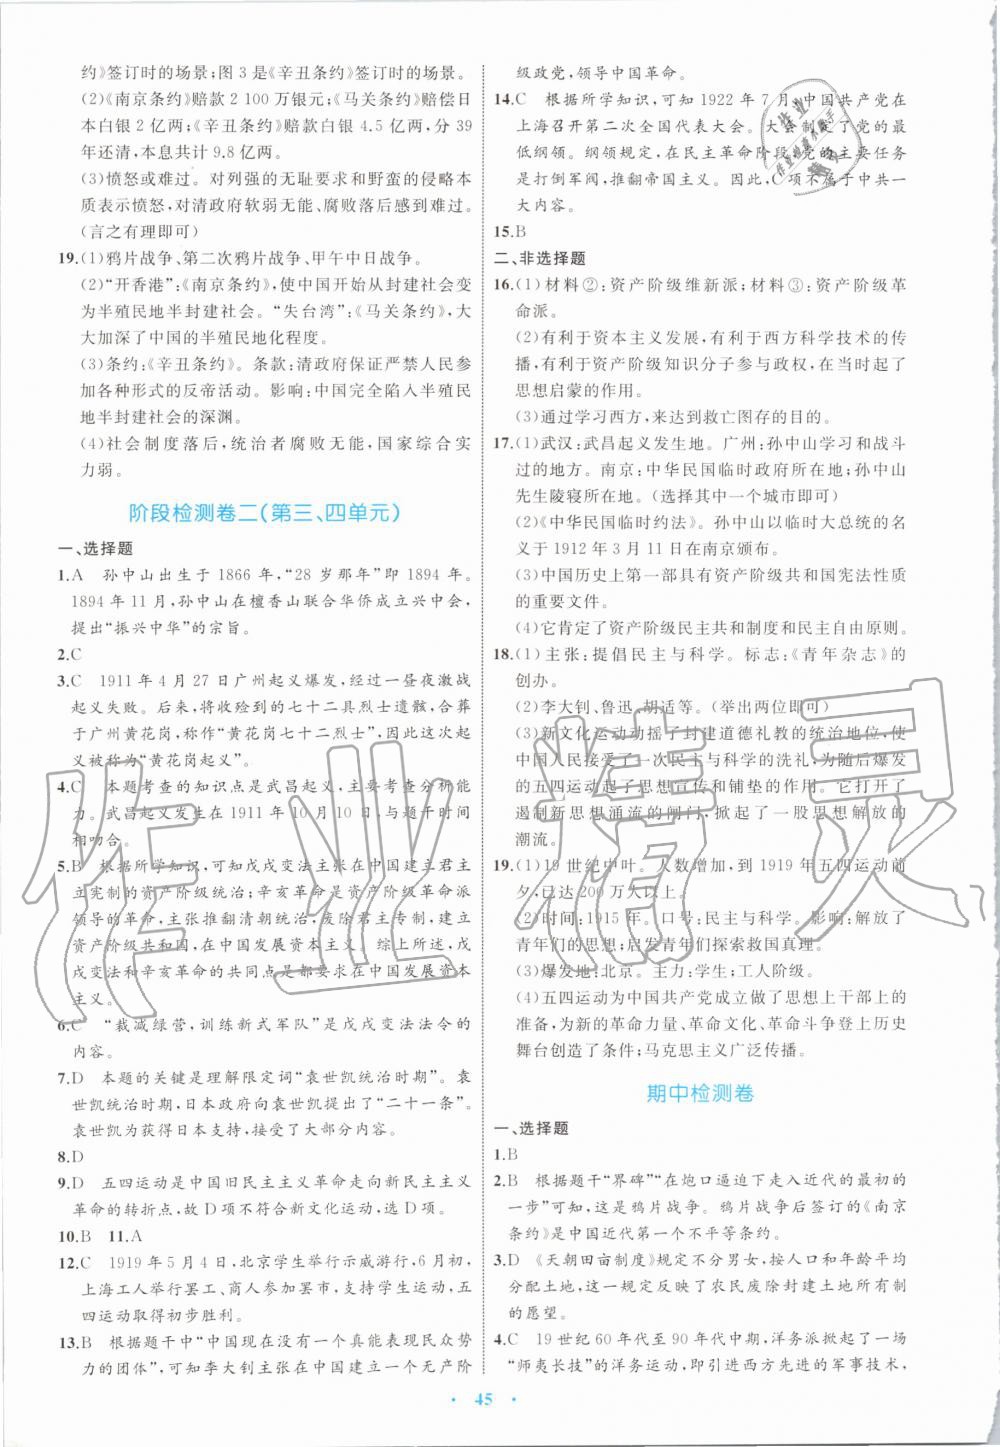 约》签订时的场景;图 3 是《辛丑条约》签订时的场景。
(2)《南京条约》赔款 2 100 万银元;《马关条约》赔偿日
本白银 2 亿两;《辛丑条约》赔款白银 4.5 亿两,分 39
年还清,本息共计 9.8 亿两。
(3)愤怒或难过。对列强的无耻要求和野蛮的侵略本
质表示愤怒,对清政府软弱无能、腐败落后感到难过。
(言之有理即可)
19.(1)鸦片战争、第二次鸦片战争、甲午中日战争。
(2)“开香港”:《南京条约》,使中国开始从封建社会变
为半殖民地半封建社会。“失台湾”:《马关条约》,大
大加深了中国的半殖民地化程度。
(3)条约:《辛丑条约》。条款:清政府保证严禁人民参
加各种形式的反帝活动。影响:中国完全陷入半殖民
地半封建社会的深渊。
(4)社会制度落后,统治者腐败无能,国家综合实
力弱。
阶段检测卷二(第三、四单元)
一、选择题
1.A 孙中山出生于 1866 年,“28 岁那年”即 1894 年。
1894 年 11 月,孙中山在檀香山联合华侨成立兴中会,
提出“振兴中华”的宗旨。
2.C
3.C 1911 年 4 月 27 日广州起义爆发,经过一昼夜激战
起义失败。后来,将收殓到的七十二具烈士遗骸,合葬
于广州黄花岗,称作“黄花岗七十二烈士”,因此这次起
义被称为“黄花岗起义”。
4.C 本题考查的知识点是武昌起义,主要考查分析能
力。武昌起义发生在 1911 年 10 月 10 日,与题干时间
相吻合。
5.B 根据所学知识,可知戊戌变法主张在中国建立君主
立宪制的资产阶级统治;辛亥革命是资产阶级革命派
领导的革命,主张推翻清朝统治,废除君主专制,建立
资产阶级共和国,在中国发展资本主义。综上所述,戊
戌变法和辛亥革命的共同点是要求在中国发展资本
主义。
6.C “裁减绿营,训练新式军队”是戊戌变法法令的
内容。
7.D 本题的关键是理解限定词“袁世凯统治时期”。袁
世凯统治时期,日本政府向袁世凯提出了“二十一条”。
袁世凯为获得日本支持,接受了大部分内容。
8.D
9.D 五四运动是中国旧民主主义革命走向新民主主义
革命的转折点,故 D 项不符合新文化运动,选 D 项。
10.B 11.A
12.C 1919 年 5 月 4 日,北京学生举行示威游行,6 月初,
上海工人举行罢工、商人参加罢市,支持学生运动,五
四运动取得初步胜利。
13.B 根据题干中“中国现在没有一个真能表现民众势
力的团体”,可知李大钊主张在中国建立一个无产阶
级政党,领导中国革命。
14.C 根据所学知识,可知 1922 年 7 月,中国共产党在
上海召开第二次全国代表大会。大会制定了党的最
低纲领。纲领规定,在民主革命阶段,党的主要任务
是打倒军阀,推翻帝国主义。因此,C 项不属于中共一
大内容。
15.B
二、非选择题
16.(1)材料②:资产阶级维新派;材料③:资产阶级革
命派。
(2)有利于资本主义发展,有利于西方科学技术的传
播,有利于资产阶级知识分子参与政权,在当时起了
思想启蒙的作用。
(3)通过学习西方,来达到救亡图存的目的。
17.(1)武汉:武昌起义发生地。广州:孙中山学习和战斗
过的地方。南京:中华民国临时政府所在地、孙中山
先生陵寝所在地。(选择其中一个城市即可)
(2)《中华民国临时约法》。孙中山以临时大总统的名
义于 1912 年 3 月 11 日在南京颁布。
(3)中国历史上第一部具有资产阶级共和国宪法性质
的重要文件。
(4)它肯定了资产阶级民主共和制度和民主自由原则。
18.(1)主张:提倡民主与科学。标志:《青年杂志》的
创办。
(2)李大钊、鲁迅、胡适等。(举出两位即可)
(3)新文化运动动摇了封建道德礼教的统治地位,使
中国人民接受了一次民主与科学的洗礼,为随后爆发
的五四运动起了思想宣传和铺垫的作用。它打开了
遏制新思想涌流的闸门,掀起了一股思想解放的
潮流。
19.(1)19 世纪中叶。人数增加,到 1919 年五四运动前
夕,已达 200 万人以上。
(2)时间:1915 年。口号:民主与科学。影响:解放了
青年们的思想;启发青年们探索救国真理。
(3)爆发地:北京。主力:学生;工人阶级。
(4)五四运动为中国共产党成立做了思想上干部上的
准备,为新的革命力量、革命文化、革命斗争登上历史
舞台创造了条件;马克思主义广泛传播。
期中检测卷
一、选择题
1.B
2.B 根据题干“界碑”“在炮口逼迫下走入近代的最初的
一步”可知,这是鸦片战争。鸦片战争后签订的《南京
条约》是中国近代第一个不平等条约。
3.D 《天朝田亩制度》规定不分男女,按人口和年龄平均
分配土地,这一规定反映了农民废除封建土地所有制
的愿望。
4.C 19 世纪 60 年代至 90 年代中期,洋务派掀起了一场
“师夷长技”的洋务运动,即引进西方先进的军事技术,
· 45 ·
作业精灵